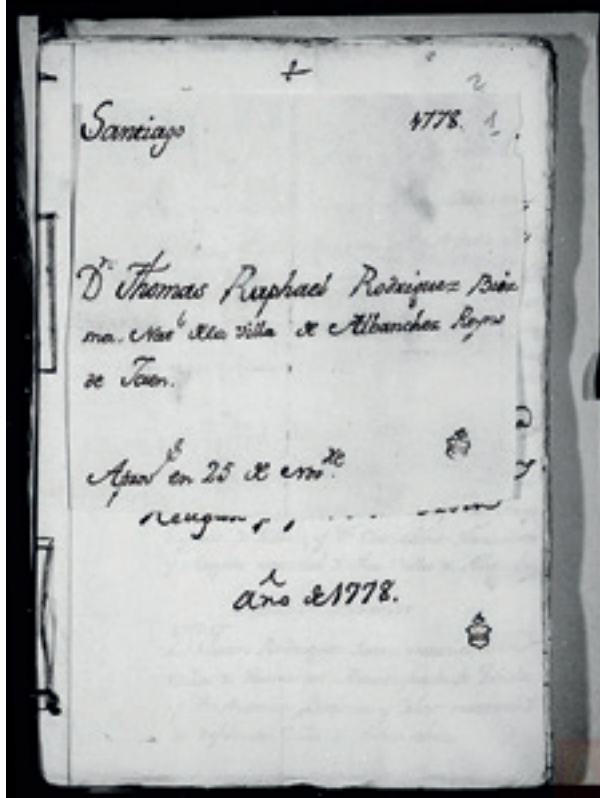 Santiago 1778. 1
2
Dn Thomas Raphael Rodriguez Biez
ma. Natl de la Villa de Albanchez Reyno
de Jaen.
Aprobde en 25 de
año de 1778.